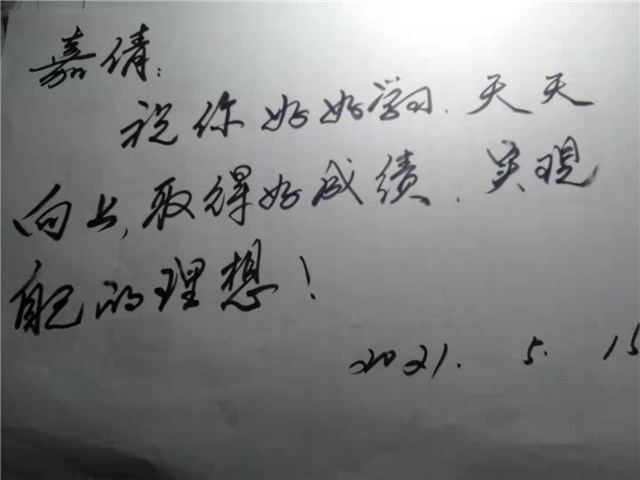 嘉倩:
祝你好好学习.天天
向上,取得好成绩.实现
自己的理想!
2021. 5. 15